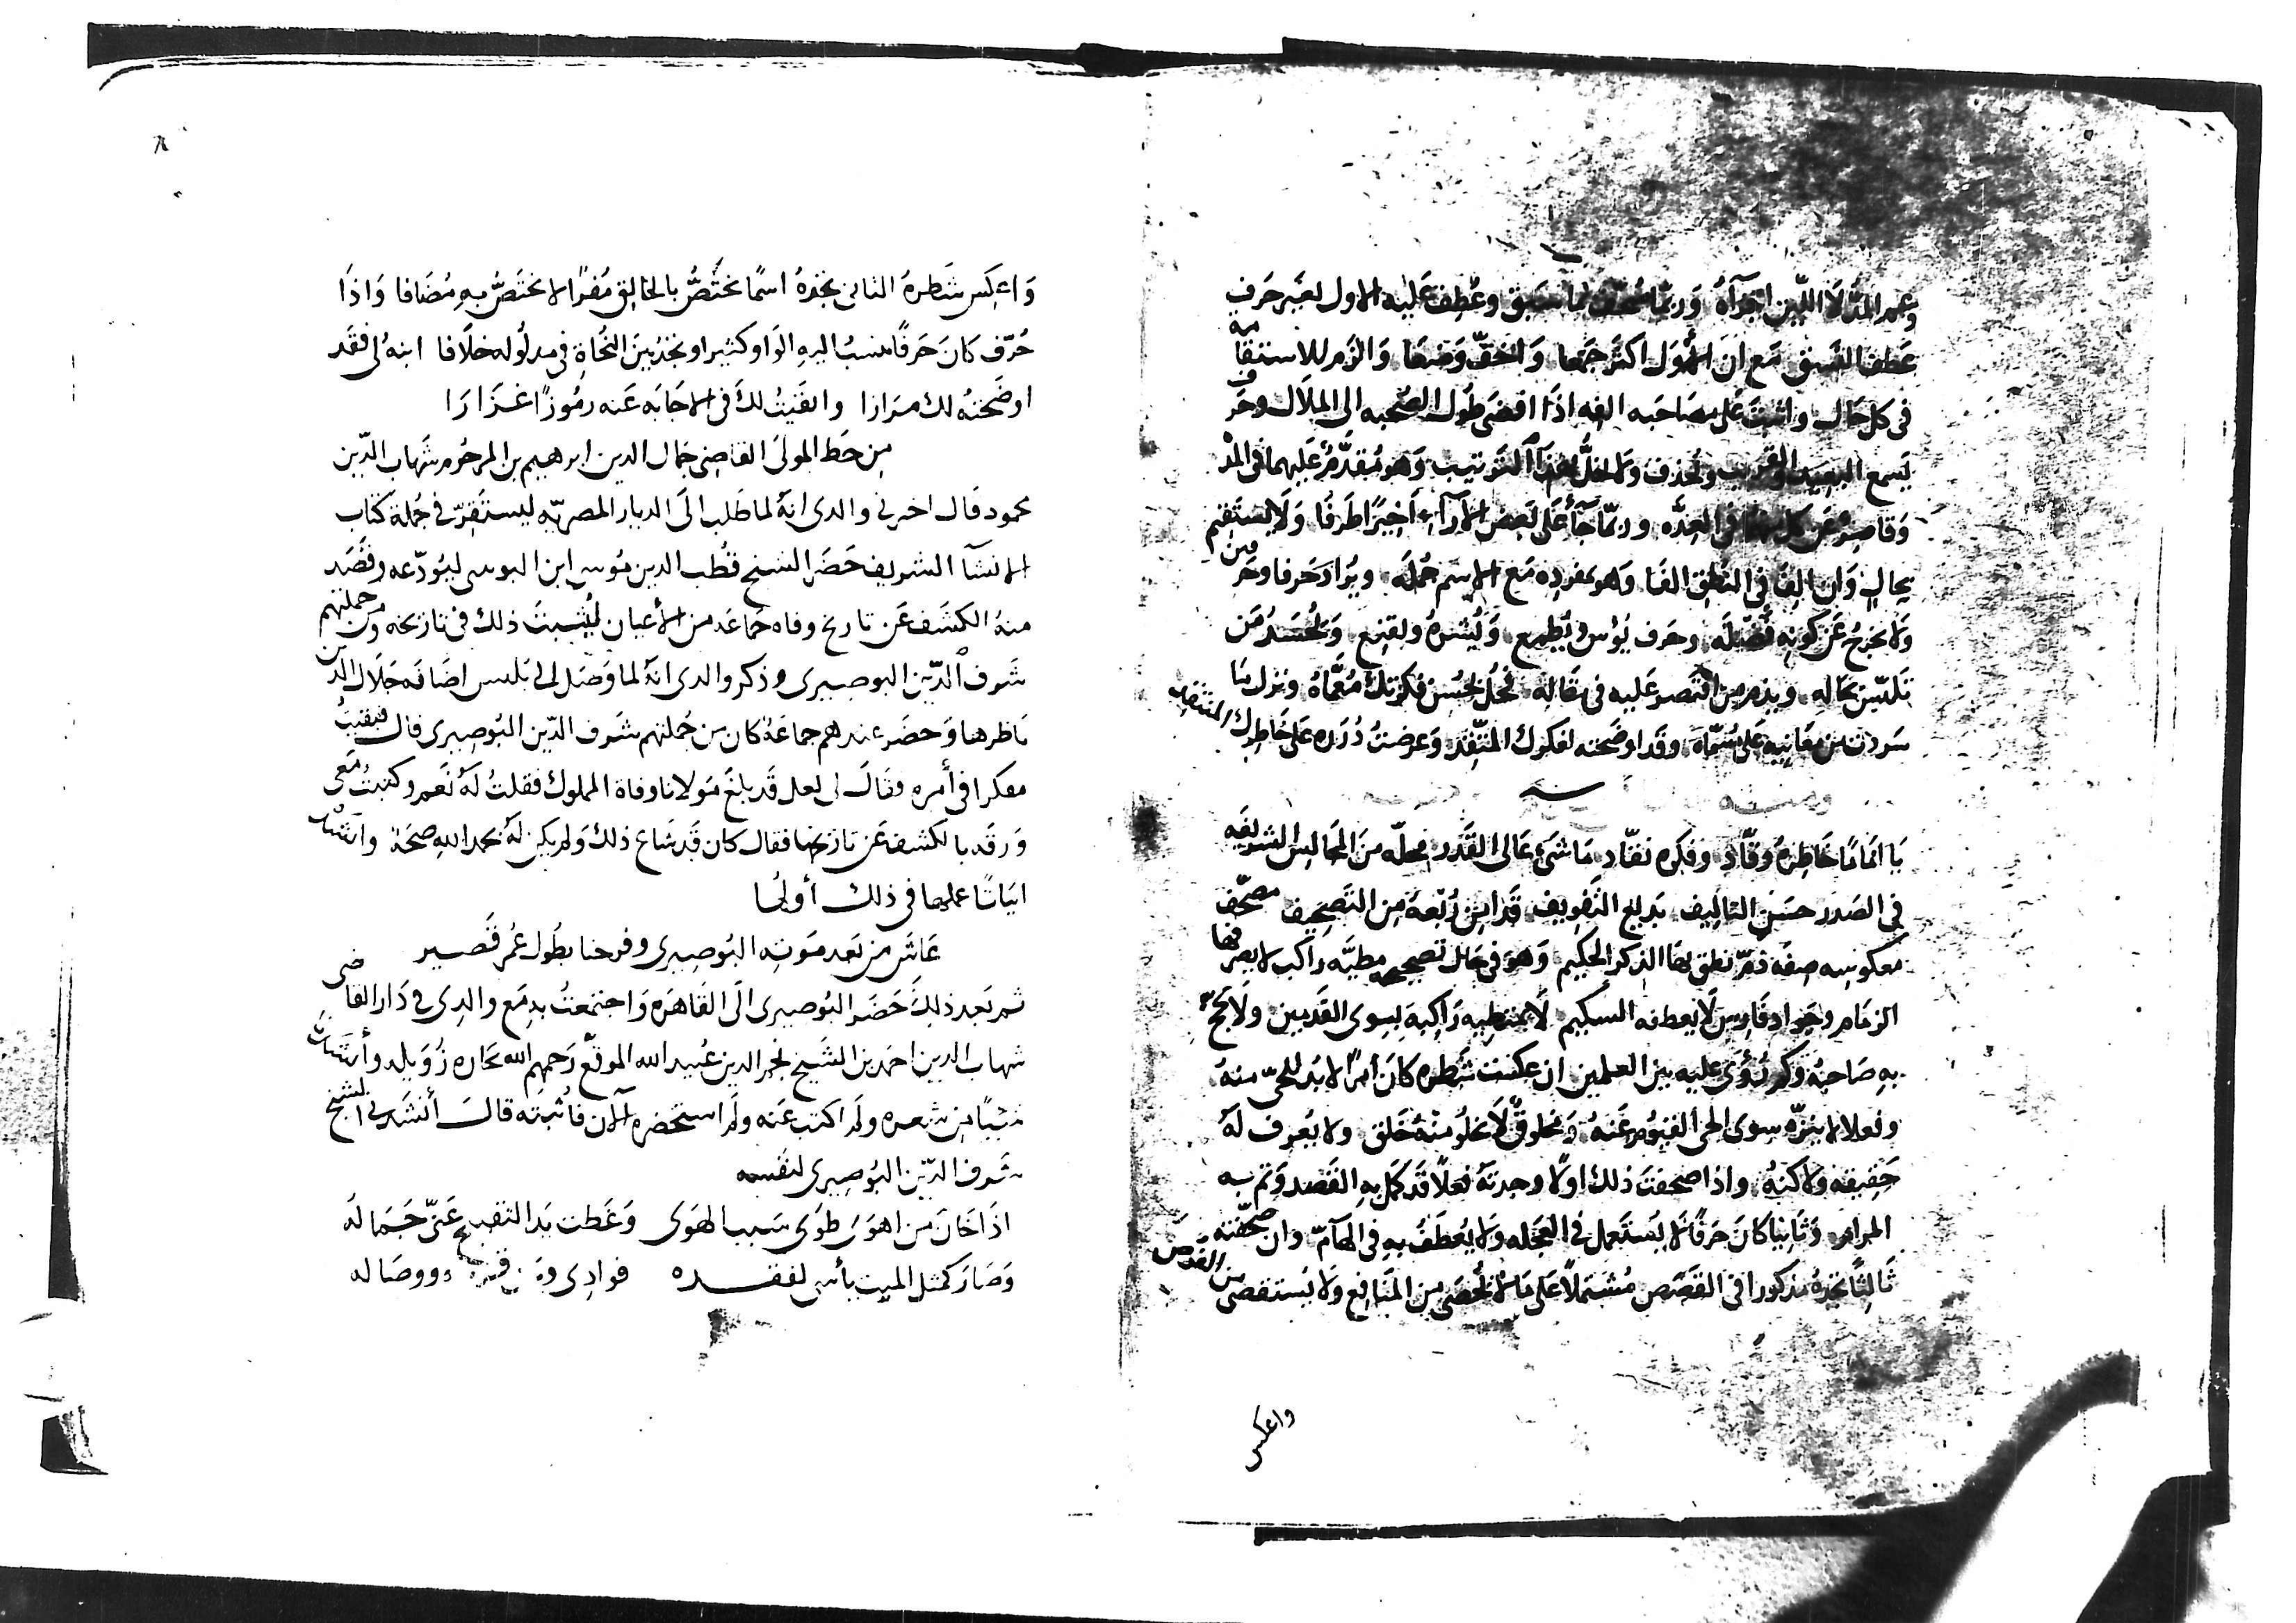 وعمر المدّ لا اللين اجزآهُ وربّما صُحّف لما سَبق وعُطِف عَليه الاول لغير حَرف
عَطف النسَق مَع ان الأوَل اكثَر جَمعا وَاخفّ وَضعًا وَالزَم للاستقامه
فى كل حَال واثبتَ عَلى صَاحَبه الفه اذَا افضى طُول الصُحبه الى الملَال وحَرف
يَسمع البعيد والقريب ويحذف ولا يخلُّ بهذَا الترتيب وَهو مُقدَّمٌ عَليهما فى المدّ
وَقاصرٌ عَن كل منهما فى العِدَّه وربمّا جَآ عَلى بَعض الآرآء اَخِيرًا طَرفًا وَلَا يستقيم
بحالٍ وَان الِفَا فى النُطق الفا وَهو بمفرده مَع الاسم جُملَه ويُرادُ حَرفا وحَرفين
وَلا يخرجُ عَن كونِه فَضلَه وحَرف يُؤس ويُطمع وَيُشره ويقنع وَيُحسَدُ مَن
تَلبّس بحاله ويذمر من اقتصر عَليه فى مقَاله فحُل بحُسن فكرَتك مُعمَّاهُ ونزل مَا
سَردت من مَعَانيه عَلى مُسَمّاه وقَد اوضَحته لفكرك المتّقد وَعرضتُ دُرَره عَلى خَاطِرك المنتقد
يَا امَامًا خَاطِرهُ وقّاد وفكره نقّاد مَا شئ عَالى القَدر محلّه منَ المجَالِس الشريفَه
فى الصَدر حسَن التاليف بَديع التَفويف قَد ابن رُبعَهُ مِن التَصحِيف مصَحّف
معكوسِه صِفَه ذمّ نطق بهَا الذكر الحكيم وَهوَ فى حَال تصحيحه مطيَّه راكب لا يصرفها
الزمَام وجَواد فَارِس لَا يعطفه الشكيم لَا يمتطيه رَاكبهَ لِسِوى القَدمين ولَا يحجّ
بهِ صَاحبُه وَكم رُؤى عَليه بين العلمين ان عكست شَطره كانَ أمرًا لا بدَ للحىّ منهُ
وفعلا لا ينزّه سوى الحى القيّوم عَنهُ وَمخلوقٌ لَا يخلُو منْه خَلق ولا يُعرف لهُ
حَقِيقه ولا كنهُ واذا صحفتَ ذلك اوّلا وجدتهُ فعلًا قَد كَمل بهِ القَصد وَتم به
المرام وَثَانِيا كانَ حَرفًا لَا يُستَعمل فى العجَله وَلا يُعطَفُ بهِ فى الهآمّ وان صحّفته
ثَالِثًا تجدهُ مذكورا فى القَصَص مُشتَملًا عَلى مَا لا يُحصَى من المنَافِع وَلا يُستقصَى من الفرَص
واعكس
وَاعكِس شَطرهُ الثانى تجدهُ اسمًا يختَصُّ بالخالِق مُفرَدًا لا يختَصُّ بهِ مُضَافا وَاذَا
حُرّف كانَ حَرفًا يُنسَبُ اليهِ الوَاو كثيرا وتجدُ بينَ النُحَاة فى مدلُوله خلَافا ابنهُ لى فقَد
اوضَحتهُ لك مرَارا والقَيتُ لكَ فى الاجَابَه عَنه رمُوزًا غزَارَا
مِن خَط المولىَ القاضِى جمَال الدين ابرهيم بن المرحُوم شَهاب الدّين
محمود قَال اخبرنى والدى انهُ لما طَلب الىَ الديار المصريّه ليستَقِرّ فى جُملة كتاب
الانشآ الشريف حَضَر الشيخ قطُب الدين مُوسى ابن اليونينى ليُودّعه وقصَد
منهُ الكشَف عَن تاريخ وفاه جمَاعَه من الأعيان ليُثبتَ ذلك فى تاريخه وَمن جملتهم
شَرف الدّين البوصِيرى وذكر والدى انهُ لما وَصَل الى بلبيس اضَافه جَلَال الدين
نَاظرها وَحضَر عندهم جماعَةٌ كان من جُملتهم شَرف الدّين البُوصِيرى قال فبقيتُ
مفكرا فى أمره فقالَ لى لعل قَد بلغَ مَولانا وفاة المملوك فقلتُ لهُ نَعم وكتبتُ مَعى
وَرقَه بالكشف عَن تاريخها فقال كان قَد شاع ذلك وَلم يكن لهُ بحمد الله صحَة وانشَدنى
ابيَاتًا عملها فى ذلك أولُها
عَاشَ من بَعد مَوته البُوصِيرى وفرحنا بطُول عُمر قَصير
ثم بَعد ذلكَ حَضَر البُوصيرى الىَ القَاهرَه وَاجتمَعتُ به مَع والدِى فى دَار القاضى
شهاب الدين احمد بن الشَيخ نجم الدين عُبيد الله الموقّع رَحمهم الله بحَاره زُوَيله وأنشَدنى
شيئًا مِن شعره ولَم اكتب عَنه ولَم استحضره الآن فأثبته قالَ أنشَدنى الشيخ
شَرف الدّين البُوصِيرى لنَفسه
اذَا خَان مَن اهوَى طوَى سَبب الهَوَى وَغَطت يَد التقبيح عَنّى جَمَاله
وَصَارَ كمثل الميت يأسى لفقده فوادِى و ووصَاله